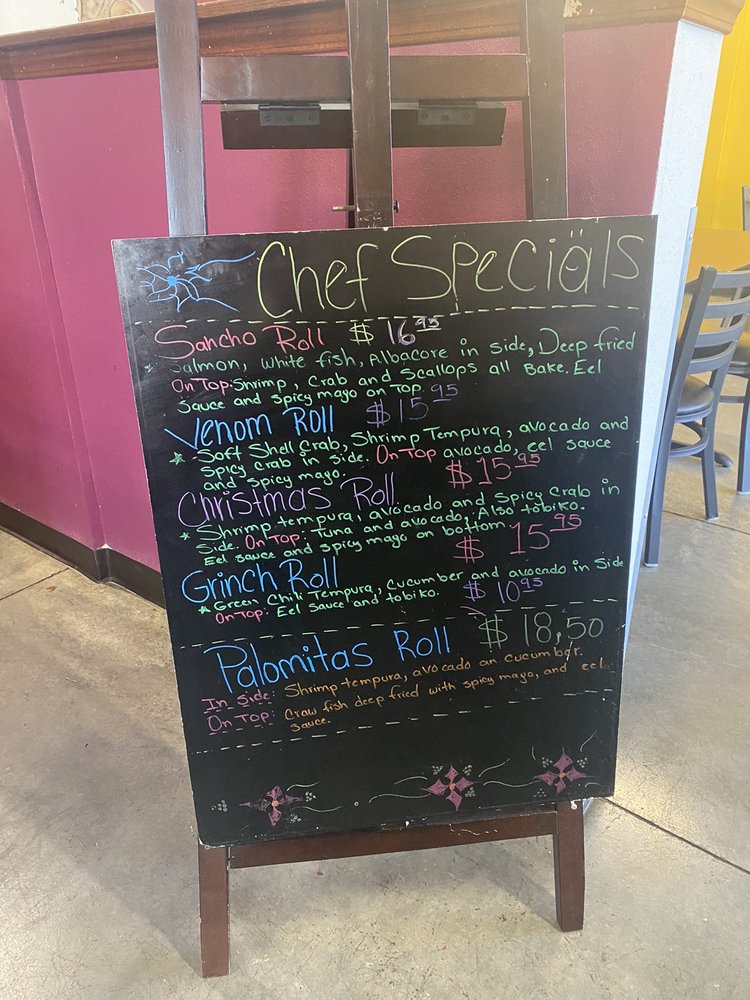 Chef Speciäls
Sancho Roll $16.95
Salmon, white fish, Albacore in side, Deep fried
On Top: Shrimp, Crab and Scallops all Bake. Eel
Sauce and spicy mayo on Top.
Venom Roll $15.95
Soft Shell Crab, Shrimp Tempura, avocado and
Spicy Crab in side. On Top avocado, eel sauce
and spicy mayo.
Christmas Roll. $15.95
Shrimp tempura, avocado and Spicy Crab in
Side. On Top: Tuna and avocado, Also tobiko.
Eel sauce and spicy mayo on bottom $15.95
Grinch Roll
Green Chili Tempura, Cucumber and avocado in side
On Top: Eel sauce and tobiko. $10.95
Palomitas Roll $18,50
In Side: Shrimp tempura, avocado an cucumber.
On Top: Craw fish deep fried with spicy mayo, and eel
sauce.